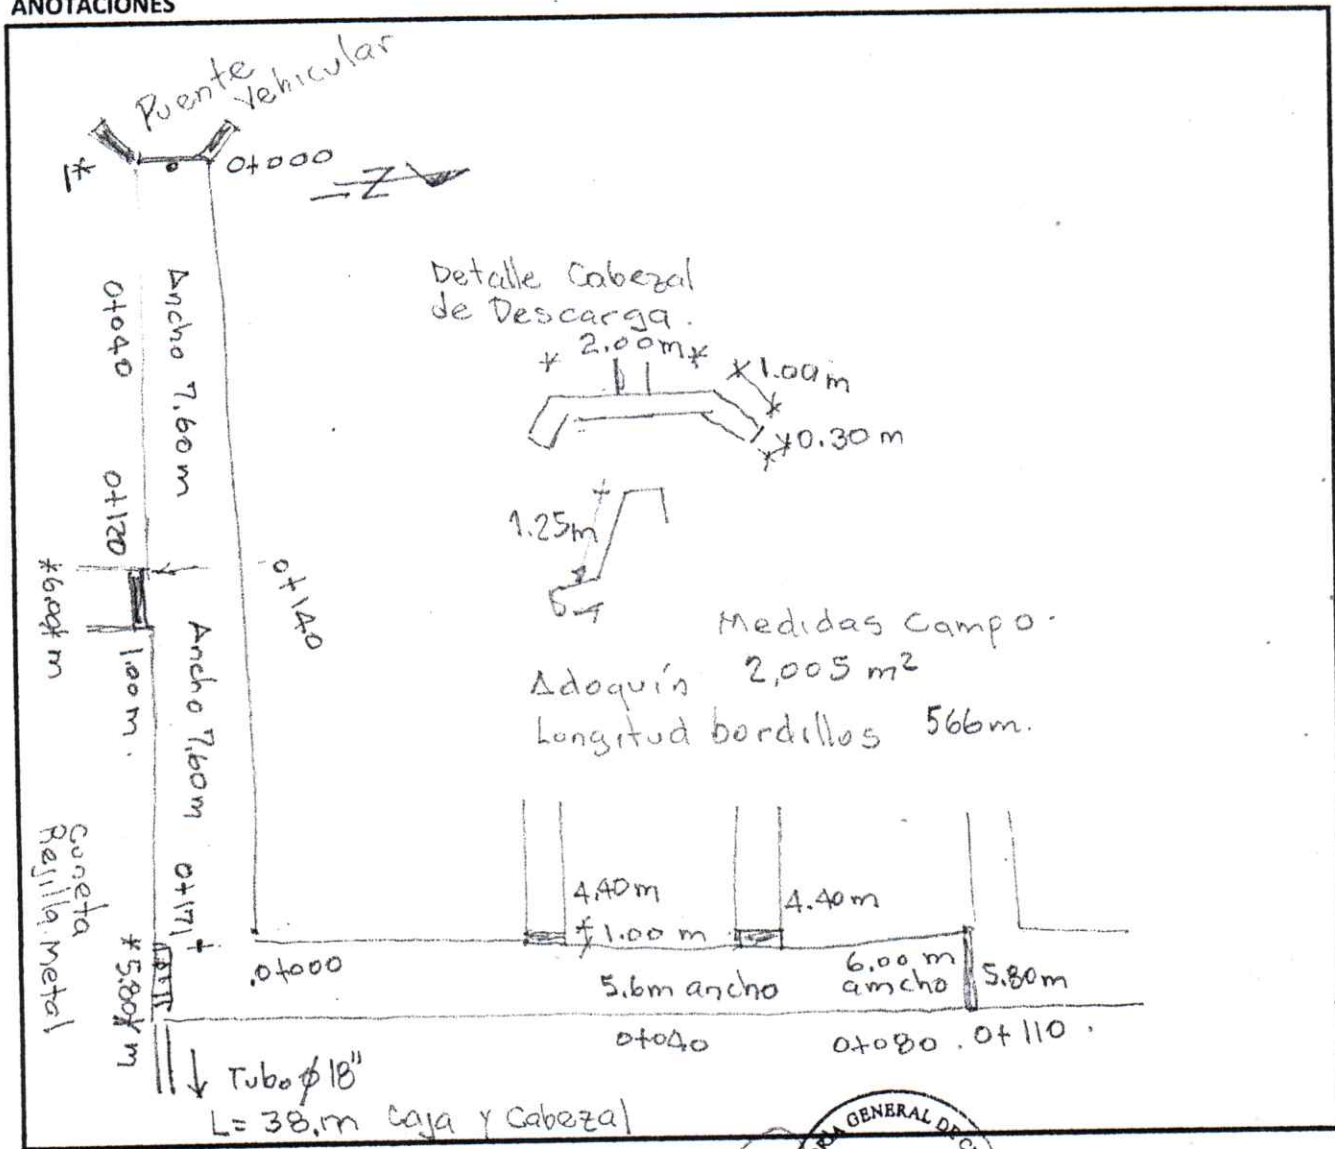 ANOTACIONES
Puente
Vehicular
1*
0+000
N
Ancho 7.60m
0+040
0+120
*6.00* m
1.00 m.
0+140
Ancho 7.60m
0+171
Cuneta
Rejilla metal
*5.80* m
Detalle Cabezal
de Descarga.
* 2.00m *
* 1.00 m
* 0.30 m
1.25m
Medidas Campo.
Adoquín 2,005 m²
Longitud bordillos 566m.
4.40m
4.40m
1.00 m
.0+000
5.6m ancho
6.00 m
ancho
5.80m
0+040
0+080 . 0+110 .
Tubo ϕ 18"
L= 38.m Caja y Cabezal
GENERAL DE